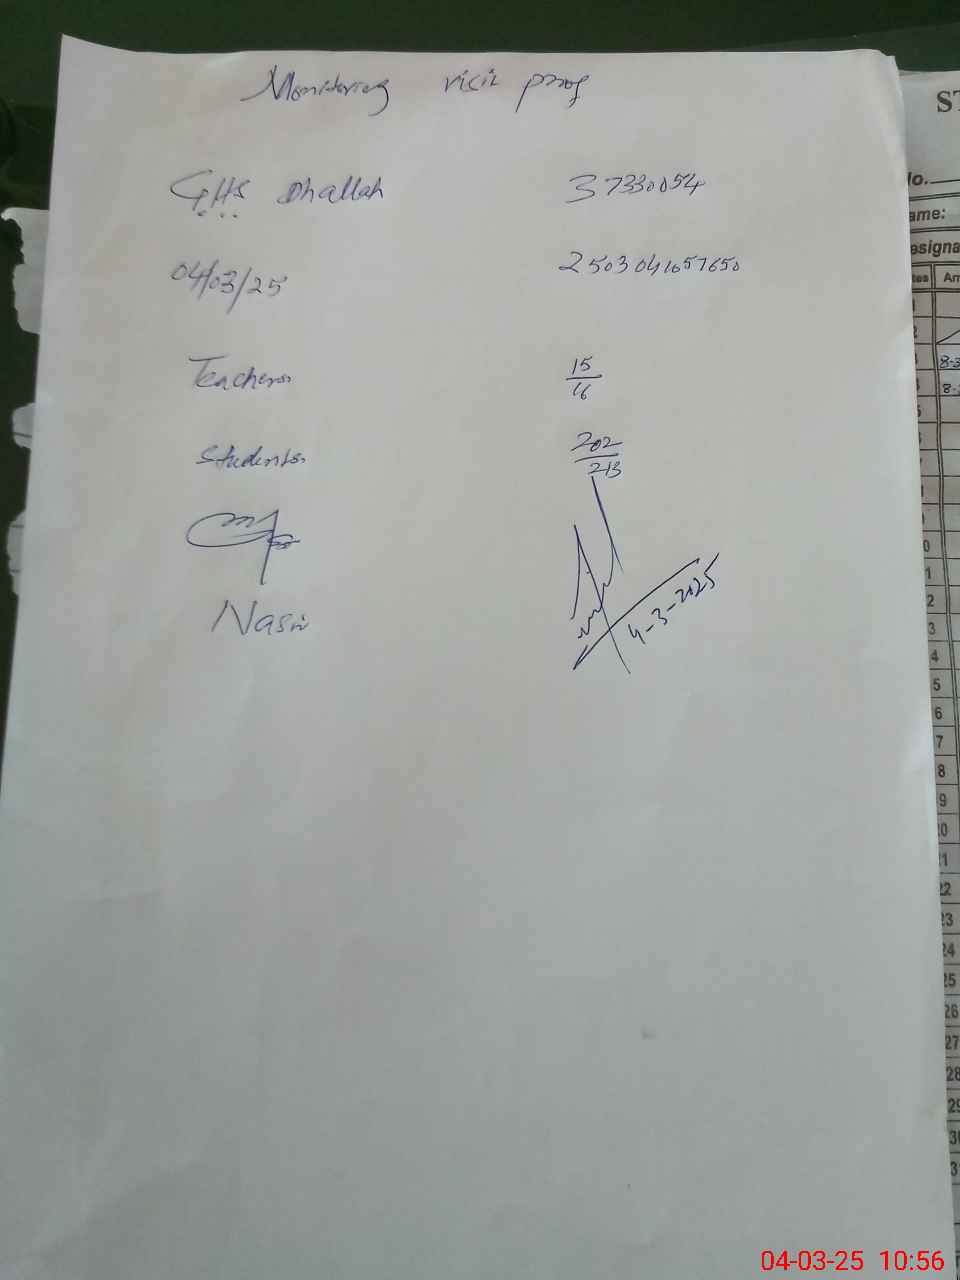 Monitoring visit proof
GHS Dhallah 37330054
04/03/25 2503041057650
Teachers 15/16
Students 202/213
Nasir
4-3-2025
ST
No.
ame:
esigna
tes Am
8-3
8-
0
1
2
3
4
5
6
7
8
9
20
21
22
23
24
25
26
27
28
29
30
31
04-03-25 10:56